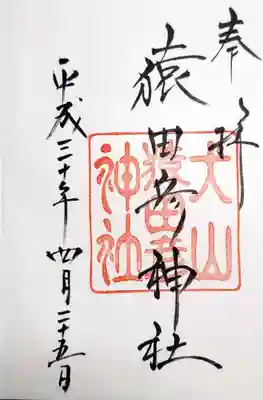 奉拝
猿田彦神社
犬山
猿田彦
神社
平成三十年四月二十五日